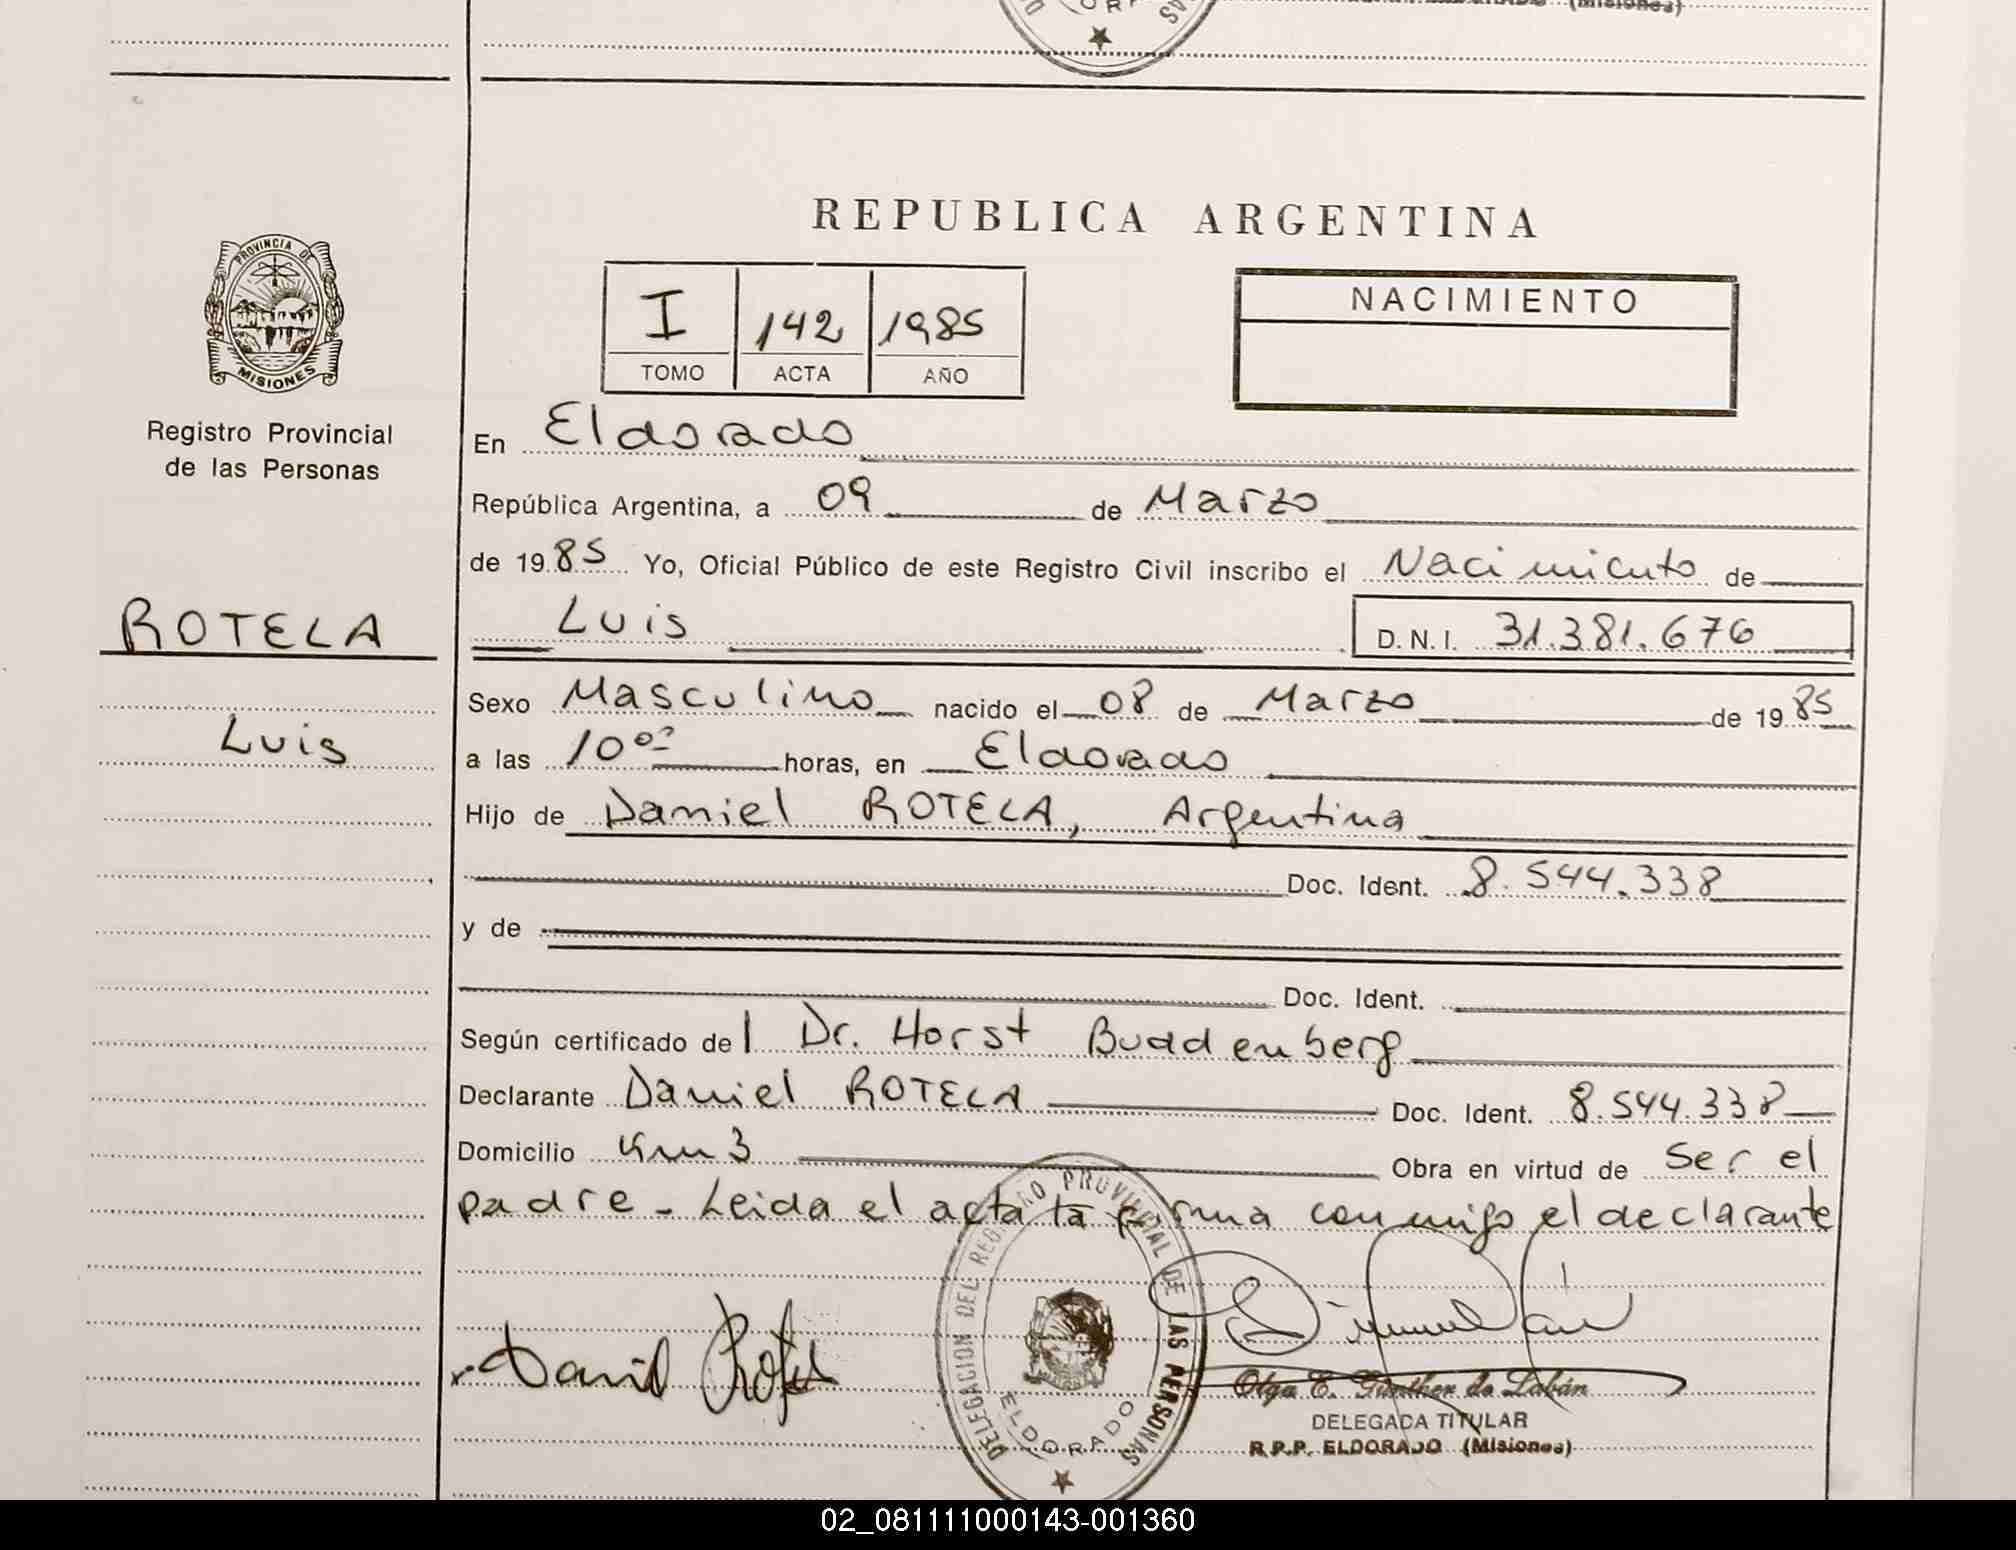 (Misiones)
REPUBLICA ARGENTINA
PROVINCIA DE MISIONES
Registro Provincial
de las Personas
I 142 1985
TOMO ACTA AÑO
NACIMIENTO
En Eldorado
República Argentina, a 09 de Marzo
de 1985 Yo, Oficial Público de este Registro Civil inscribo el Nacimiento de
ROTELA
Luis
Luis D.N.I. 31.381.676
Sexo Masculino nacido el 08 de Marzo de 1985
a las 10 00 horas, en Eldorado
Hijo de Daniel ROTELA, Argentina
Doc. Ident. 8.544.338
y de
Doc. Ident.
Según certificado del Dr. Horst Buddenberg
Declarante Daniel ROTELA Doc. Ident. 8.544.338
Domicilio Km 3 Obra en virtud de Ser el
padre - Leida el acta la firma conmigo el declarante
DELEGACION DEL REGISTRO PROVINCIAL DE LAS PERSONAS
ELDORADO
Daniel Rotela
Olga E. Günther de Labán
DELEGADA TITULAR
R.P.P. ELDORADO (Misiones)
02_081111000143-001360